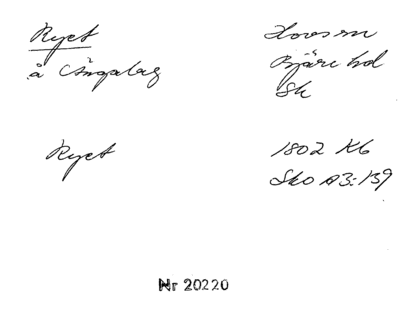 Ryet Hovs sn
å Ängalag Bjäre hd
Sk
Ryet 1802 Kb
Sko A3:139
Nr 20220